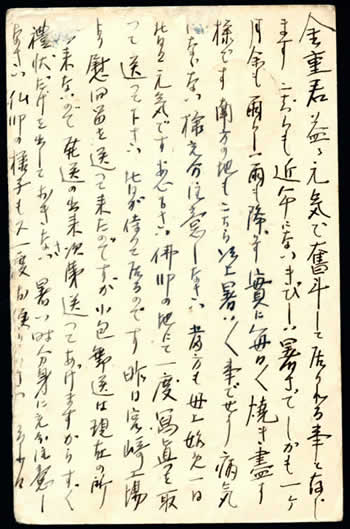 金重君益々元気で奮斗して居られる事と存じ
ます こちらも近年にないきびしい暑さでしかも一ヶ
月余も雨らしい雨も降らず實に毎日々々焼き盡す
様です 南方の地もこちら以上暑い事でせう 病気
にならない様充分注意しなさい 当方も母上始め一同
皆元気です 安心なさい 佛印の地にて一度寫真を取
って送って下さい 皆が待って居るのです 昨日宮崎工場
より慰問笛を送って来たのですが小包郵送は現在の所
出来ないので発送の出来次第送ってあげますからすぐ
禮状だけを出しておきなさい 暑い時分身に充分注意し
なさい 佛印の様子も又一度お便り